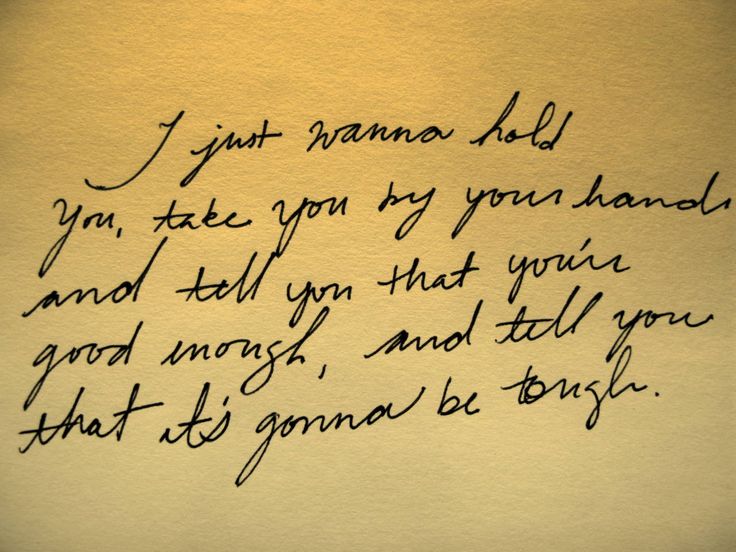 I just wanna hold
you, take you by your hands
and tell you that you're
good enough, and tell you
that it's gonna be tough.